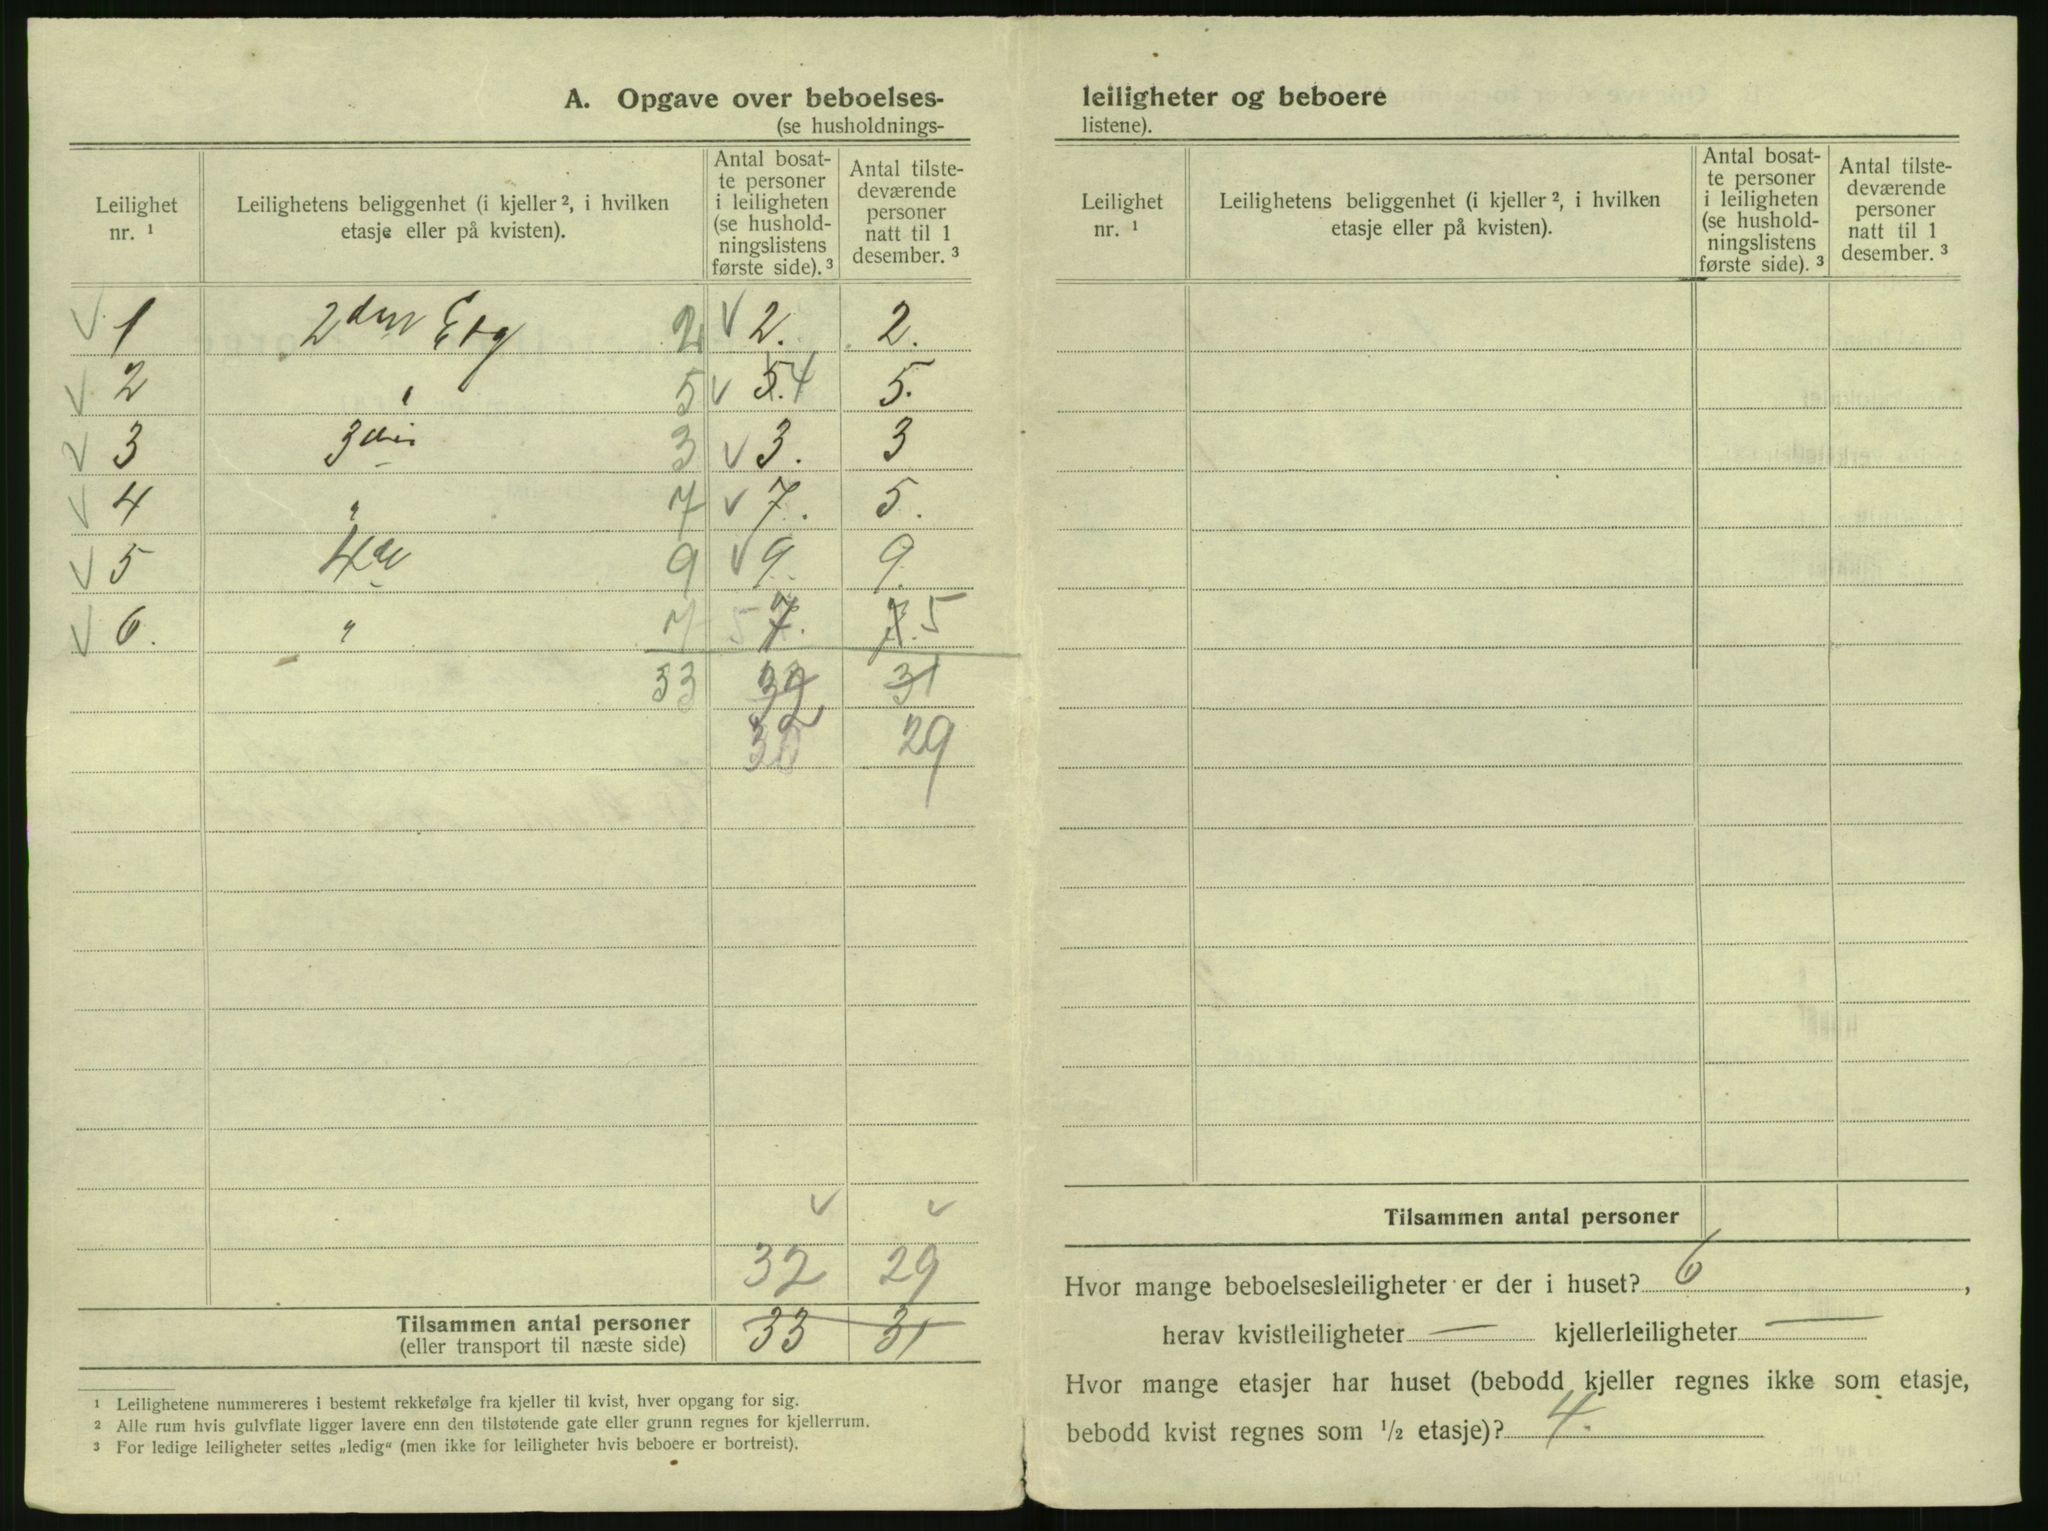 A. Opgave over beboelses-
(se husholdnings-
Leilighet nr. ¹
Leilighetens beliggenhet (i kjeller ², i hvilken etasje eller på kvisten).
Antal bosat-
te personer
i leiligheten
(se hushold-
ningslistens
første side). ³
Antal tilste-
deværende
personer
natt til 1
desember. ³
√ 1 2den Etg 2 √ 2. 2.
√ 2 " 5 √ 5.4 5.
√ 3 3die 3 √ 3. 3
√ 4 " 7 √ 7. 5.
√ 5 4de 9 √ 9. 9.
√ 6. " 7 5 7. 7. 5
33 31
29
√ √
32 29
Tilsammen antal personer 33 31
(eller transport til næste side)
¹ Leilighetene nummereres i bestemt rekkefølge fra kjeller til kvist, hver opgang for sig.
² Alle rum hvis gulvflate ligger lavere enn den tilstøtende gate eller grunn regnes for kjellerrum.
³ For ledige leiligheter settes „ledig“ (men ikke for leiligheter hvis beboere er bortreist).
leiligheter og beboere
listene).
Leilighet nr. ¹
Leilighetens beliggenhet (i kjeller ², i hvilken etasje eller på kvisten).
Antal bosat-
te personer
i leiligheten
(se hushold-
ningslistens
første side). ³
Antal tilste-
deværende
personer
natt til 1
desember. ³
Tilsammen antal personer
Hvor mange beboelsesleiligheter er der i huset? 6 ,
herav kvistleiligheter — kjellerleiligheter —
Hvor mange etasjer har huset (bebodd kjeller regnes ikke som etasje,
bebodd kvist regnes som ½ etasje)? 4.